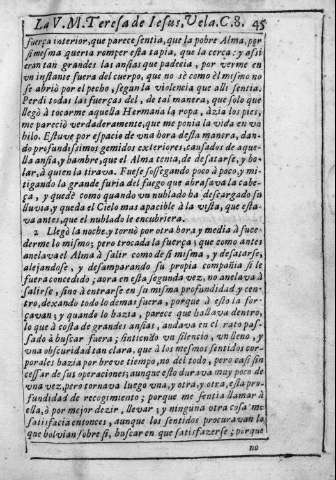 La V. M. Teresa de Iesus, Vela, C.8. 45
fuerça interior, que parece sentia, que la pobre Alma, por
si mesma queria romper esta tapia, que la cerca: y assi
eran tan grandes las ansias que padecia, por verme en
vn instante fuera del cuerpo, que no sè como èl mismo no
se abriò por el pecho, segun la violencia que alli sentia.
Perdi todas las fuerças del, de tal manera, que solo que
llegò à tocarme aquella Hermana la ropa, àzia los pies,
me pareciò verdaderamente, que me ponia la vida en vn
hilo. Estuve por espacio de vna hora desta manera, dan-
do profundissimos gemidos exteriores, causados de aque-
lla ansia, y hambre, que el Alma tenia, de desatarse, y bo-
lar, à quien la tirava. Fuese sossegando poco à poco, y mi-
tigando la grande furia del fuego que abrasava la cabe-
ça, y quedè como quando vn nublado ha descargado su
lluvia, y queda el Cielo mas apacible à la vista, que esta-
va antes, que el nublado le encubriera.
2 Llegò la noche, y tornò por otra hora y media à suce-
derme lo mismo; pero trocada la fuerça; que como antes
anelava el Alma à salir como de si misma, y desatarse,
alejandose, y desamparando su propia compañia si le
fuera concedido; aora en esta segunda vez, no anelava à
salirse, sino à entrarse en su misma profundidad, y cen-
tro, dexando todo lo demas fuera, porque à esto la for-
çavan; y quando lo hazia, parece que hallava dentro,
lo que à costa de grandes ansias, andava en el rato pas-
sado à buscar fuera; sintiendo vn silencio, vn lleno, y
vna obscuridad tan clara, que à los mesmos sentidos cor-
porales hazia por breve tiempo, no del todo, pero casi sin
cessar de sus operaciones; aunque esto durava muy poco de
vna vez, pero tornava luego vna, y otra, y otra, esta pro-
fundidad de recogimiento; porque me sentia llamar à
ella, ò por mejor dezir, llevar; y ninguna otra cosa me
satisfacia entonces, aunque los sentidos procuravan lo
que bolvian sobre si, buscar en que satisfazerse; porque
no